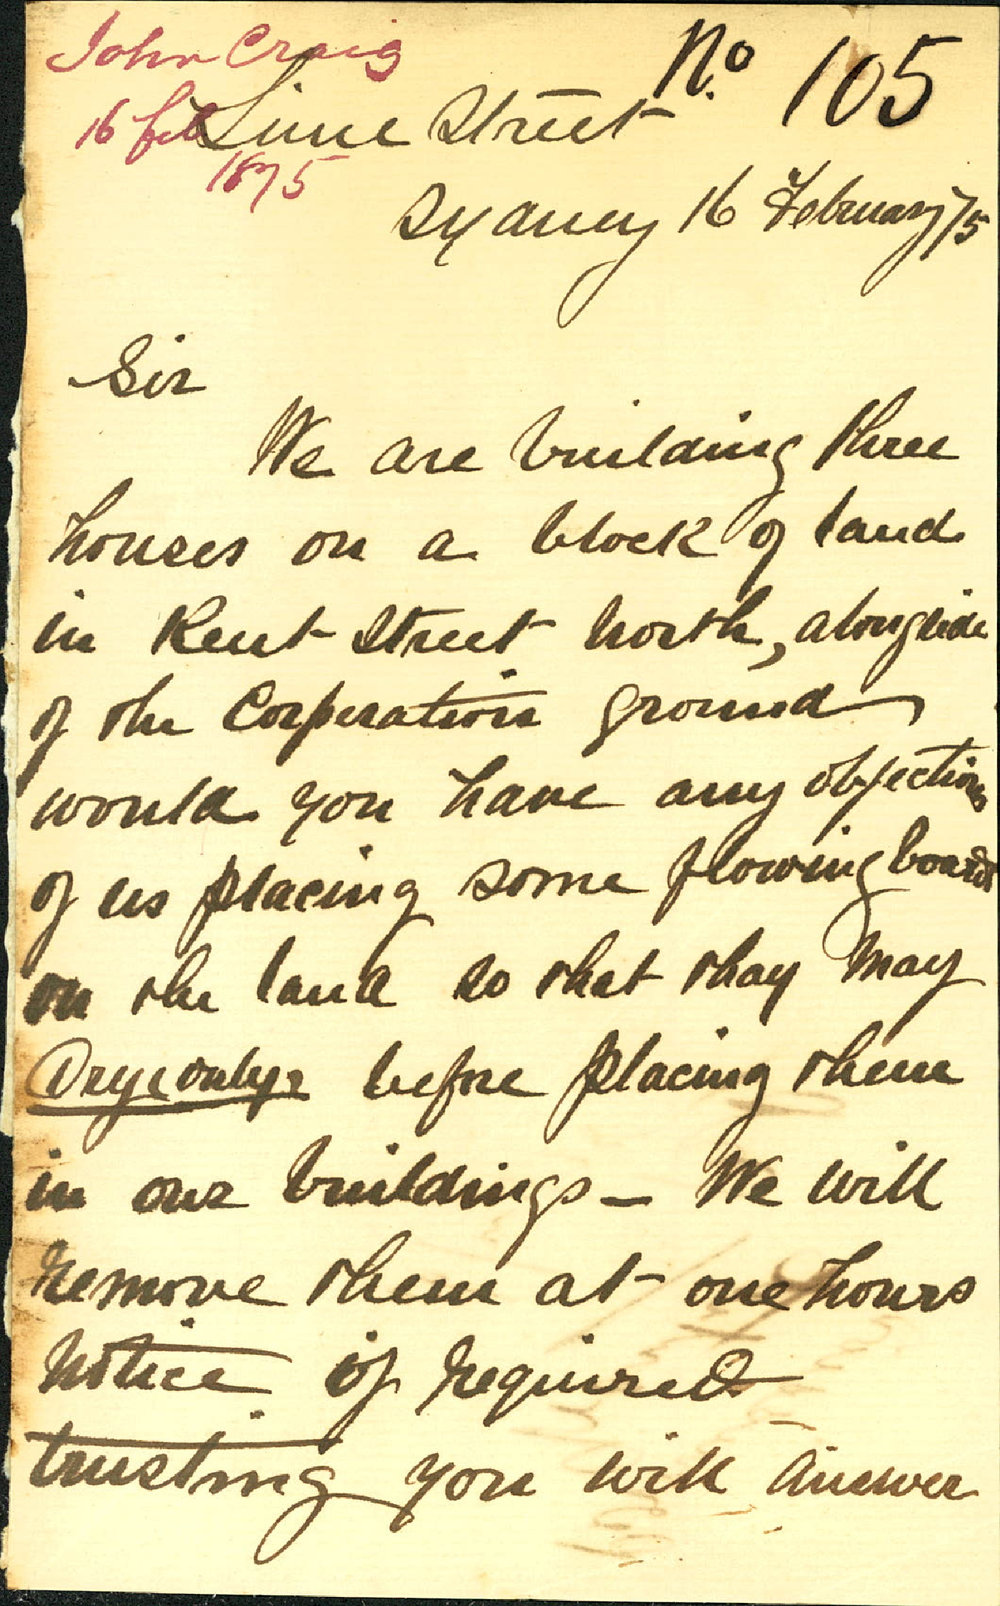 John Craig
No 105
16 feb
1875
Lime Street
Sydney 16 February/75
Sir
We are building three
houses on a block of land
in Kent Street North, alongside
of the Corporation ground
would you have any objections
of us placing some flowing boards
on the land so that thay may
Dry only before placing them
in our buildings - We will
remove them at one hours
notice if required
trusting you will answer